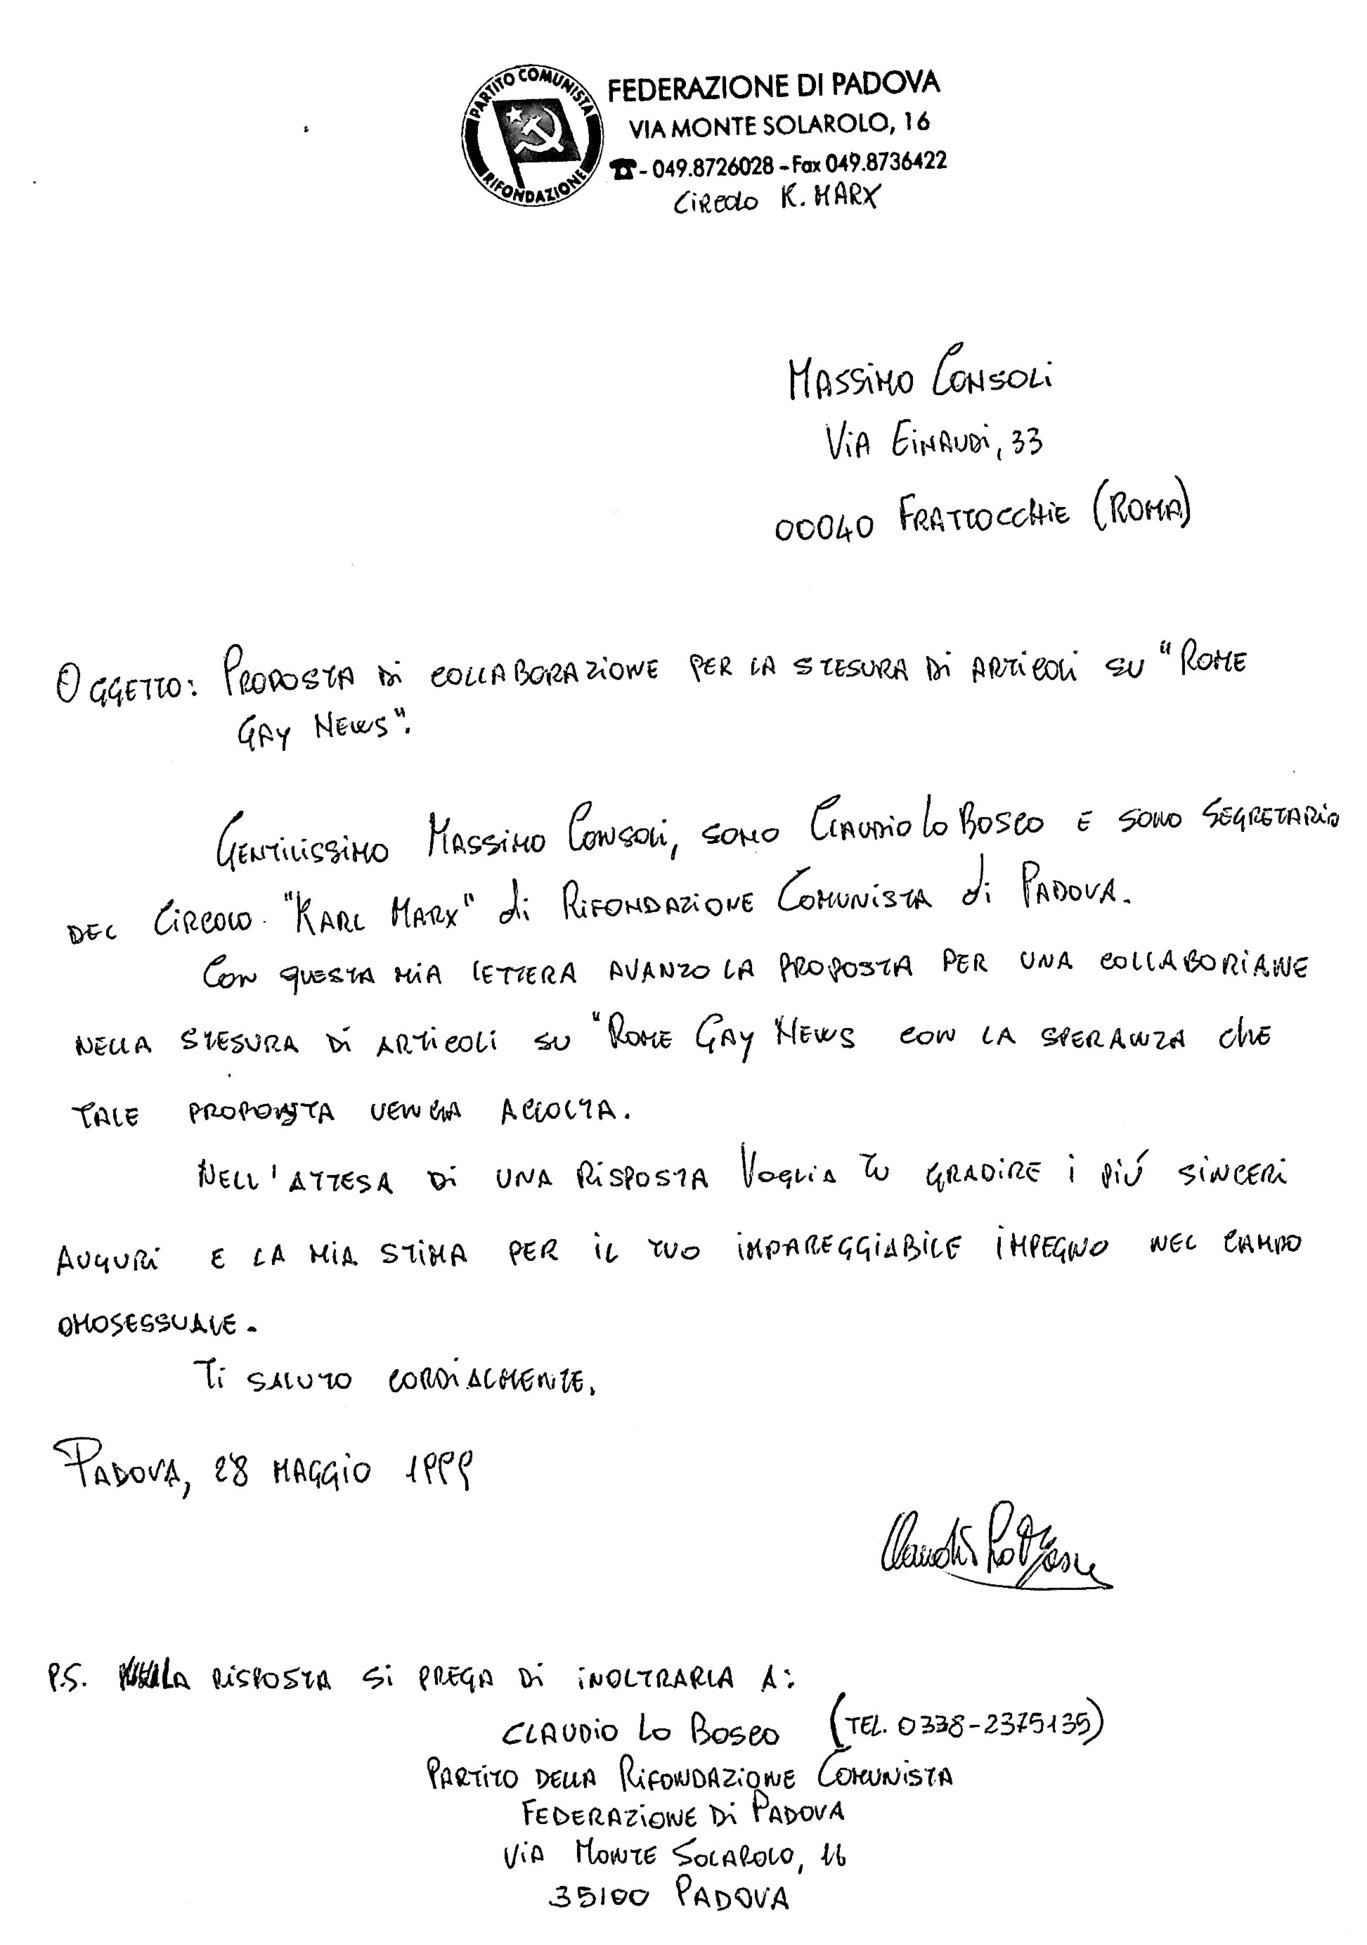 PARTITO COMUNISTA
RIFONDAZIONE
FEDERAZIONE DI PADOVA
VIA MONTE SOLAROLO, 16
☎ - 049.8726028 - Fax 049.8736422
CIRCOLO K. MARX
MASSIMO CONSOLI
VIA EINAUDI, 33
00040 FRATTOCCHIE (ROMA)
OGGETTO: PROPOSTA DI COLLABORAZIONE PER LA STESURA DI ARTICOLI SU "ROME
GAY NEWS".
GENTILISSIMO MASSIMO CONSOLI, SONO CLAUDIO LO BOSCO E SONO SEGRETARIO
DEL CIRCOLO "KARL MARX" di RIFONDAZIONE COMUNISTA di PADOVA.
CON QUESTA MIA LETTERA AVANZO LA PROPOSTA PER UNA COLLABORIANE
NELLA STESURA DI ARTICOLI SU "ROME GAY NEWS CON LA SPERANZA CHE
TALE PROPOSTA VENGA ACCOLTA.
NELL'ATTESA DI UNA RISPOSTA VOGLIA TU GRADIRE I PIÚ SINCERI
AUGURI E LA MIA STIMA PER IL TUO IMPAREGGIABILE IMPEGNO NEL CAMPO
OMOSESSUALE.
TI SALUTO CORDIALMENTE.
PADOVA, 28 MAGGIO 1999
Claudio Lo Bosco
P.S. LA RISPOSTA SI PREGA DI INOLTRARLA A:
CLAUDIO LO BOSCO (TEL. 0338-2375135)
PARTITO DELLA RIFONDAZIONE COMUNISTA
FEDERAZIONE DI PADOVA
VIA MONTE SOLAROLO, 16
35100 PADOVA